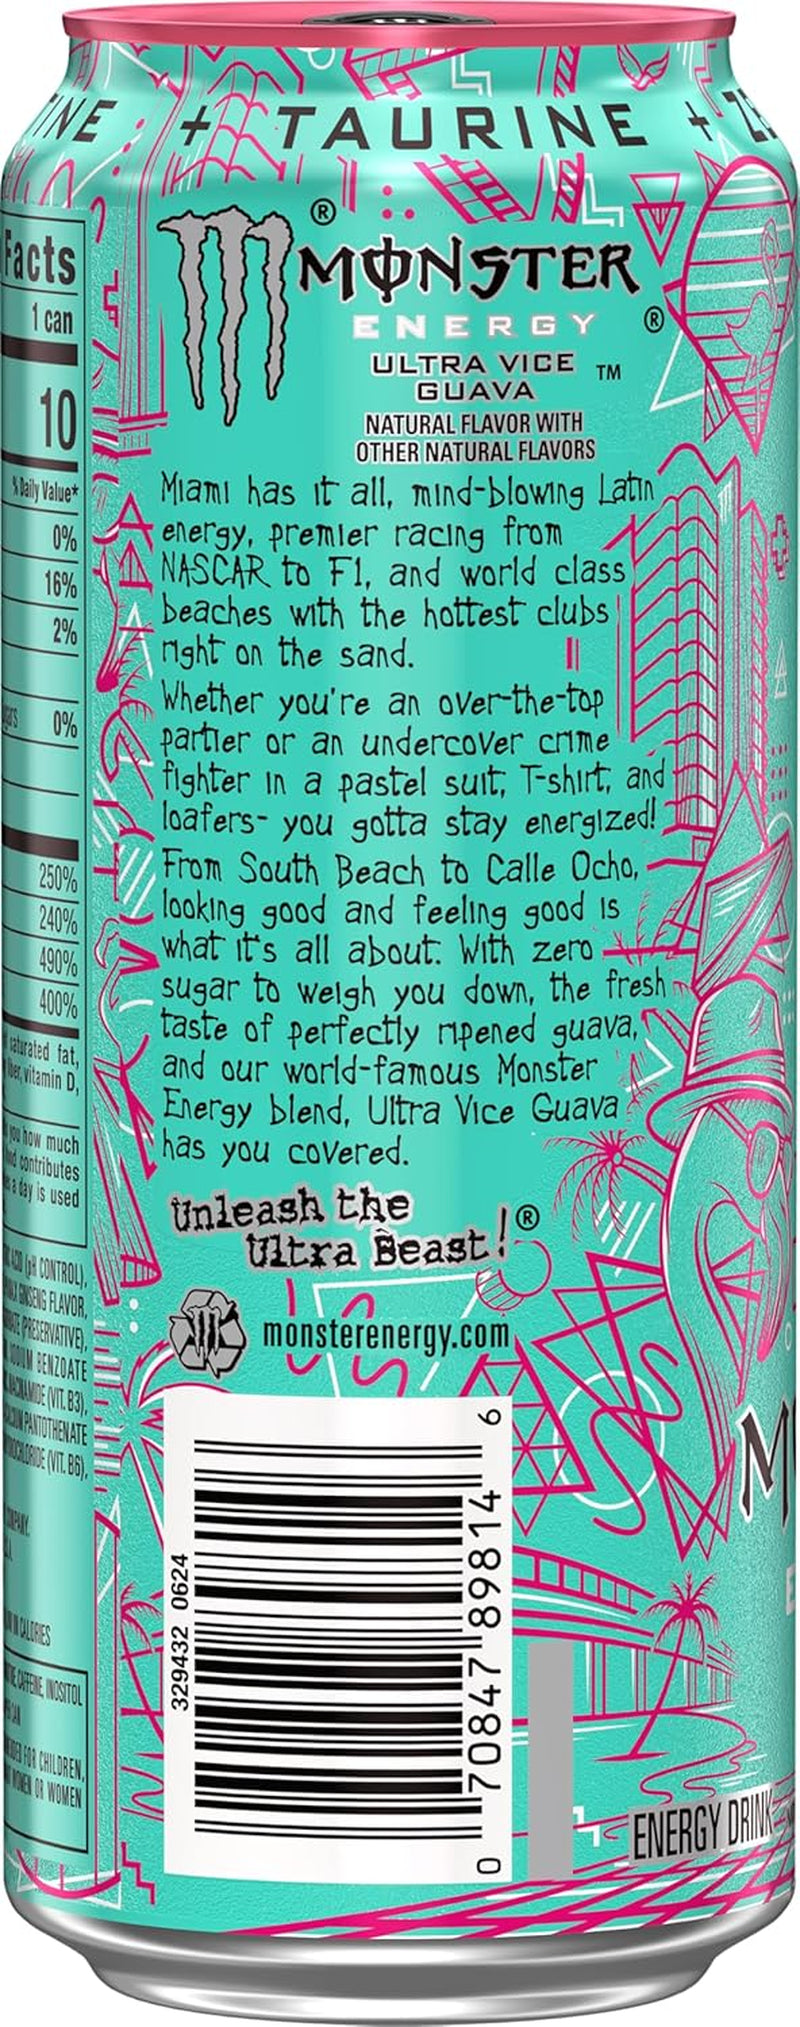 INE + TAURINE + ZE
Facts
1 can
10
% Daily Value*
0%
16%
2%
0%
250%
240%
490%
400%
saturated fat,
vitamin D,
you how much
contributes
a day is used
(pH CONTROL),
GINSENG FLAVOR,
(PRESERVATIVE),
BENZOATE
NIACINAMIDE (VIT. B3),
CALCIUM PANTOTHENATE
(VIT. B6),
COMPANY.
CALORIES
CAFFEINE, INOSITOL
FOR CHILDREN,
WOMEN OR WOMEN
® MONSTER
ENERGY ®
ULTRA VICE ™
GUAVA
NATURAL FLAVOR WITH
OTHER NATURAL FLAVORS
Miami has it all, mind-blowing Latin
energy, premier racing from
NASCAR to F1, and world class
beaches with the hottest clubs
right on the sand.
Whether you're an over-the-top
partier or an undercover crime
fighter in a pastel suit, T-shirt, and
loafers- you gotta stay energized!
From South Beach to Calle Ocho,
looking good and feeling good is
what it's all about. With zero
sugar to weigh you down, the fresh
taste of perfectly ripened guava,
and our world-famous Monster
Energy blend, Ultra Vice Guava
has you covered.
Unleash the
Ultra Beast! ®
monsterenergy.com
329432 0624
0 70847 89814 6
ENERGY DRINK
M
E